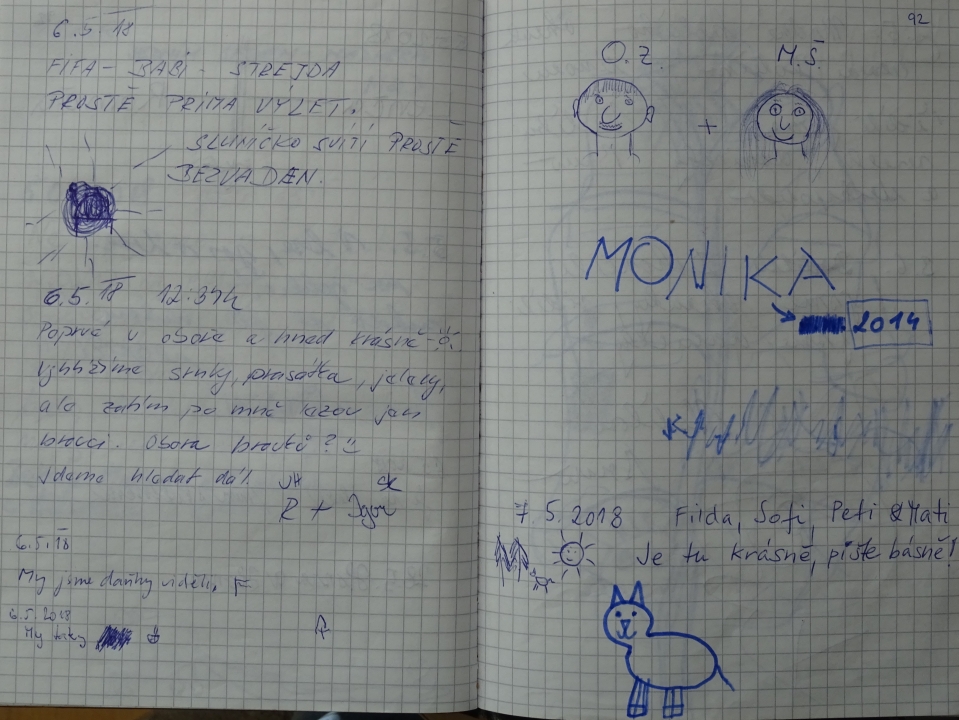 6.5.18
FIFA - BABI - STREJDA
PROSTĚ PRIMA VÝLET.
SLUNÍČKO SVÍTÍ PROSTĚ
BEZVA DEN.
6.5.18 12:34h
Poprvé v oboře a hned krásně
vyhlížíme srnky, prasátka, jeleny,
ale zatím po mně lezou jen
brouci. Obora broučí?
Jdeme hledat dál.
R + Igor
6.5.18
My jsme daňky viděli, F
6.5.2018
My taky
92
O.Z. M.Š.
+
MONIKA
2014
7.5.2018 Filda, Sofi, Peti & Mati
Je tu krásně, pište básně!